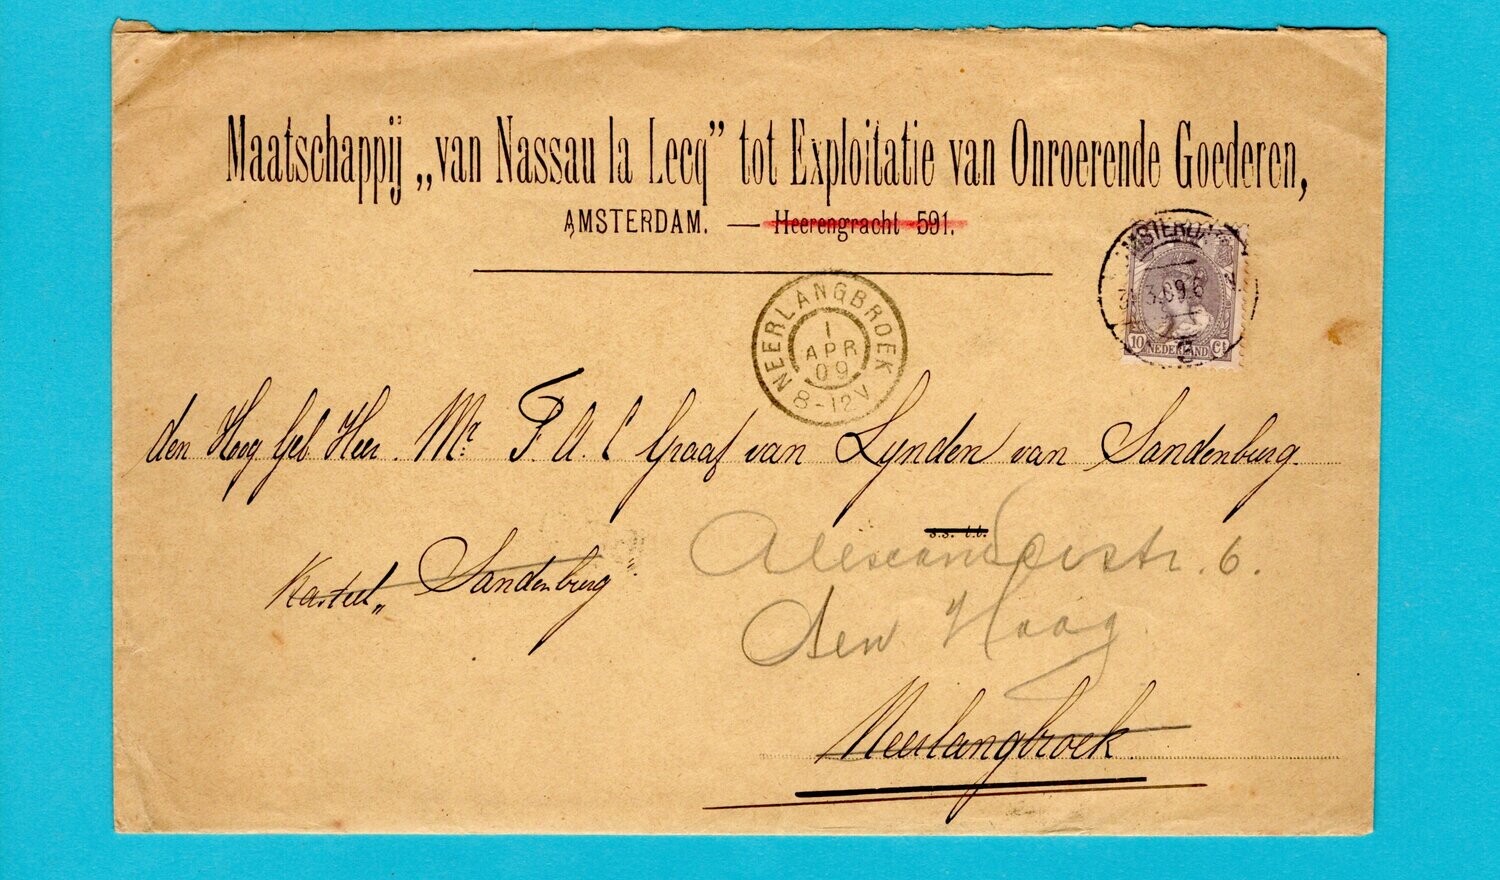 Maatschappij „van Nassau la Lecq” tot Exploitatie van Onroerende Goederen,
AMSTERDAM. — Heerengracht 591.
AMSTERDAM
31.3.09.6
10 NEDERLAND Ct
NEERLANGBROEK
1
APR
09
8-12V
den Hoog Gel Heer. Mr. F. A. C Graaf van Lynden van Sandenburg.
s.s. t.t.
Kasteel „Sandenburg
Alexanderstr. 6.
den Haag
Neerlangbroek